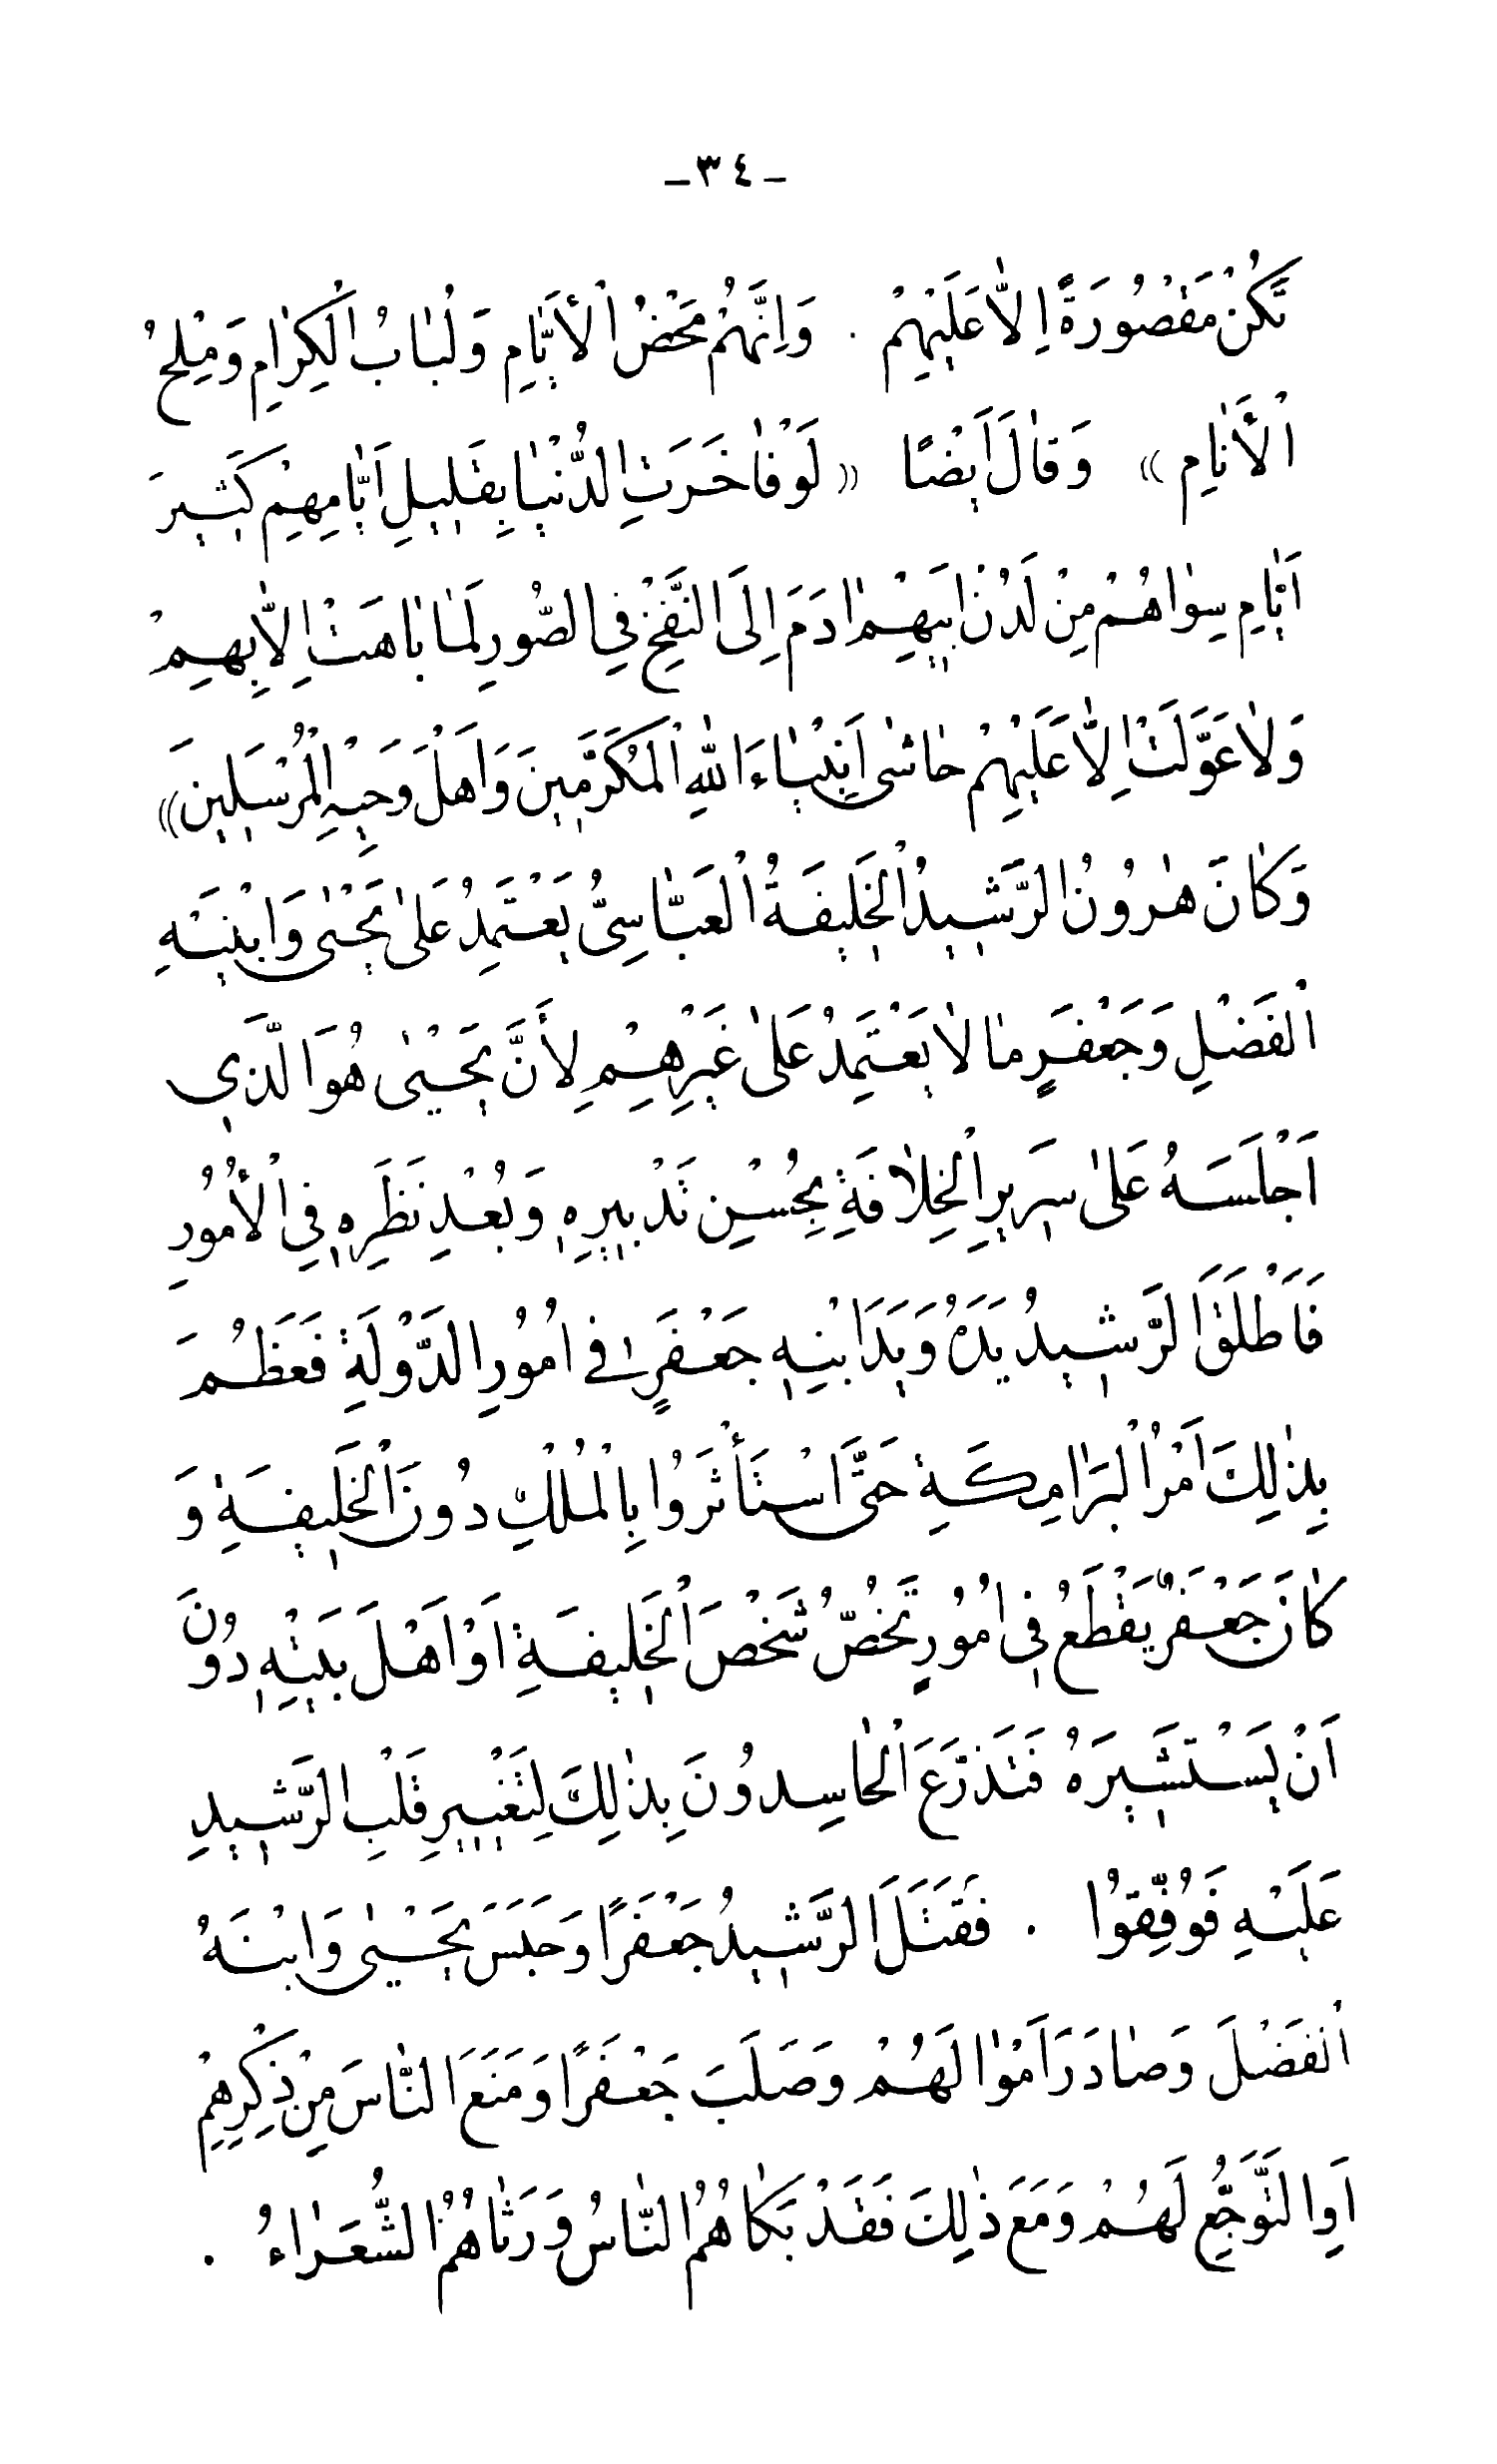 -٣٤-
تَكُنْ مَقْصُورَةً اِلاّٰ عَلَيْهِمْ . وَاِنَّهُمْ مَحْضُ اْلأَيّٰامِ وَلُبٰابُ الْكِرٰامِ وَمِلْحُ
اْلأَنٰامِ » وَقٰالَ اَيْضًا « لَوْ فٰاخَرَتِ الدُّنْيٰا بِقَلِيلِ اَيّٰامِهِمْ كَثِيرَ
اَيّٰامِ سِوٰاهُمْ مِنْ لَدُنْ اَبِيهِمْ اٰدَمَ اِلَى النَّفْخِ فِي الصُّورِ لَمٰا بٰاهَتْ اِلاّٰ بِهِمْ
وَلاٰ عَوَّلَتْ اِلاّٰ عَلَيْهِمْ حٰاشٰى اَنْبِيٰاءَ اللّٰهِ الْمُكَرَّمِينَ وَاَهْلَ وَحْيِهِ الْمُرْسَلِينَ »
وَكٰانَ هٰرُونُ الرَّشِيدُ الْخَلِيفَةُ الْعَبّٰاسِيُّ يَعْتَمِدُ عَلٰى يَحْيٰى وَابْنَيْهِ
الْفَضْلِ وَجَعْفَرٍ مٰا لاٰ يَعْتَمِدُ عَلٰى غَيْرِهِمْ لِأَنَّ يَحْيٰى هُوَ الَّذِي
اَجْلَسَهُ عَلٰى سَرِيرِ الْخِلاٰفَةِ بِحُسْنِ تَدْبِيرِهِ وَبُعْدِ نَظَرِهِ فِي اْلأُمُورِ
فَاَطْلَقَ الرَّشِيدُ يَدَهُ وَيَدَ ابْنِهِ جَعْفَرٍ فِي اُمُورِ الدَّوْلَةِ فَعَظُمَ
بِذٰلِكَ اَمْرُ الْبَرٰامِكَةِ حَتَّى اسْتَأْثَرُوا بِالْمُلْكِ دُونَ الْخَلِيفَةِ وَ
كٰانَ جَعْفَرٌ يَقْطَعُ فِي اُمُورٍ تَخُصُّ شَخْصَ الْخَلِيفَةِ اَوْ اَهْلَ بَيْتِهِ دُونَ
اَنْ يَسْتَشِيرَهُ فَتَذَرَّعَ الْحٰاسِدُونَ بِذٰلِكَ لِتَغْيِيرِ قَلْبِ الرَّشِيدِ
عَلَيْهِ فَوُفِّقُوا . فَقَتَلَ الرَّشِيدُ جَعْفَرًا وَحَبَسَ يَحْيٰى وَابْنَهُ
الْفَضْلَ وَصٰادَرَ اَمْوٰالَهُمْ وَصَلَبَ جَعْفَرًا وَمَنَعَ النّٰاسَ مِنْ ذِكْرِهِمْ
اَوِ التَّوَجُّعِ لَهُمْ وَمَعَ ذٰلِكَ فَقَدْ بَكٰاهُمُ النّٰاسُ وَرَثٰاهُمُ الشُّعَرٰاءُ .